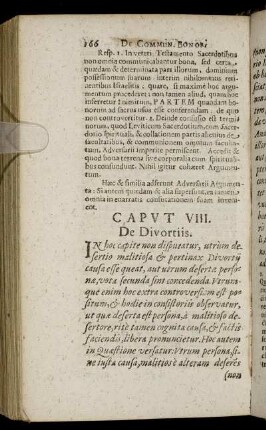 166 DE COMMUN. BONOR:
Resp. 1. In veteri Testamento Sacerdotibus
non omnia communicabantur bona, sed certa,
quædam & determinata pars illorum, dominium
possessionum suarum interim nihilominus reti-
nentibus Israelitis; quare, si maximè hoc argu-
mentum procederet, non tamen aliud, quam hoc
inferretur summum, PARTEM quandam bo-
norum ad sacros usus esse conferendam, de quo
non controvertitur. 2. Deinde consusio est tempo-
rum, quod Leviticum Sacerdotium, cum Sacer-
dotio Spirituali, & collationem partis alicujus de
facultatibus, & communionem omnium faculta-
tum, Adversarii imperitè permiscent. Accedit 3.
quod bona terrena sive corporalia cum spiritualibus
confundunt. Nihil igitur cohæret Argumen-
tum.
Hæc & similia adferunt Adversarii Argumen-
ta: Si autem quædam & alia supersunt, ea tamen
omnia in enarratis consutationem suam inveni-
ent.
CAPUT VIII.
De Divortiis.
IN hoc capite non disputatur, utrùm de-
sertio malitiosa & pertinax Divortij
causa esse queat, aut utrùm desertæ perso-
næ, vota secunda sint concedenda. Utrum-
que enim hoc extra controversiam est po-
situm, & hodie in consistoriis observatur,
ut quæ deserta est persona, à malitioso de-
sertore, ritè tamen cognita causa, & factis
faciendis, libera pronuncietur. Hoc autem
in Quæstione versatur: Utrum persona, si-
ne justa causa, malitiosè alteram deserēs
(non